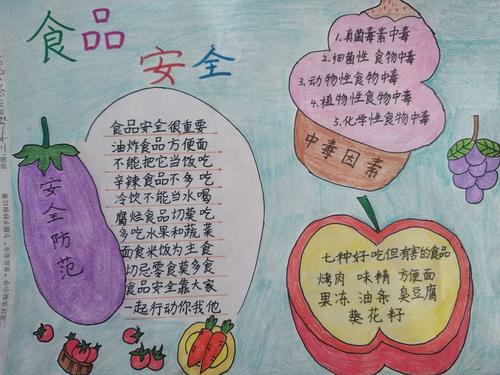 食品
安全
安全防范
食品安全很重要
油炸食品方便面
不能把它当饭吃
辛辣食品不多吃
冷饮不能当水喝
腐烂食品切莫吃
多吃水果和蔬菜
面食米饭为主食
切忌零食莫多食
食品安全靠大家
一起行动你我他
1.真菌毒素中毒
2.细菌性食物中毒
3.动物性食物中毒
4.植物性食物中毒
5.化学性食物中毒
中毒因素
七种好吃但有害的食品
烤肉 味精 方便面
果冻 油条 臭豆腐
葵花籽